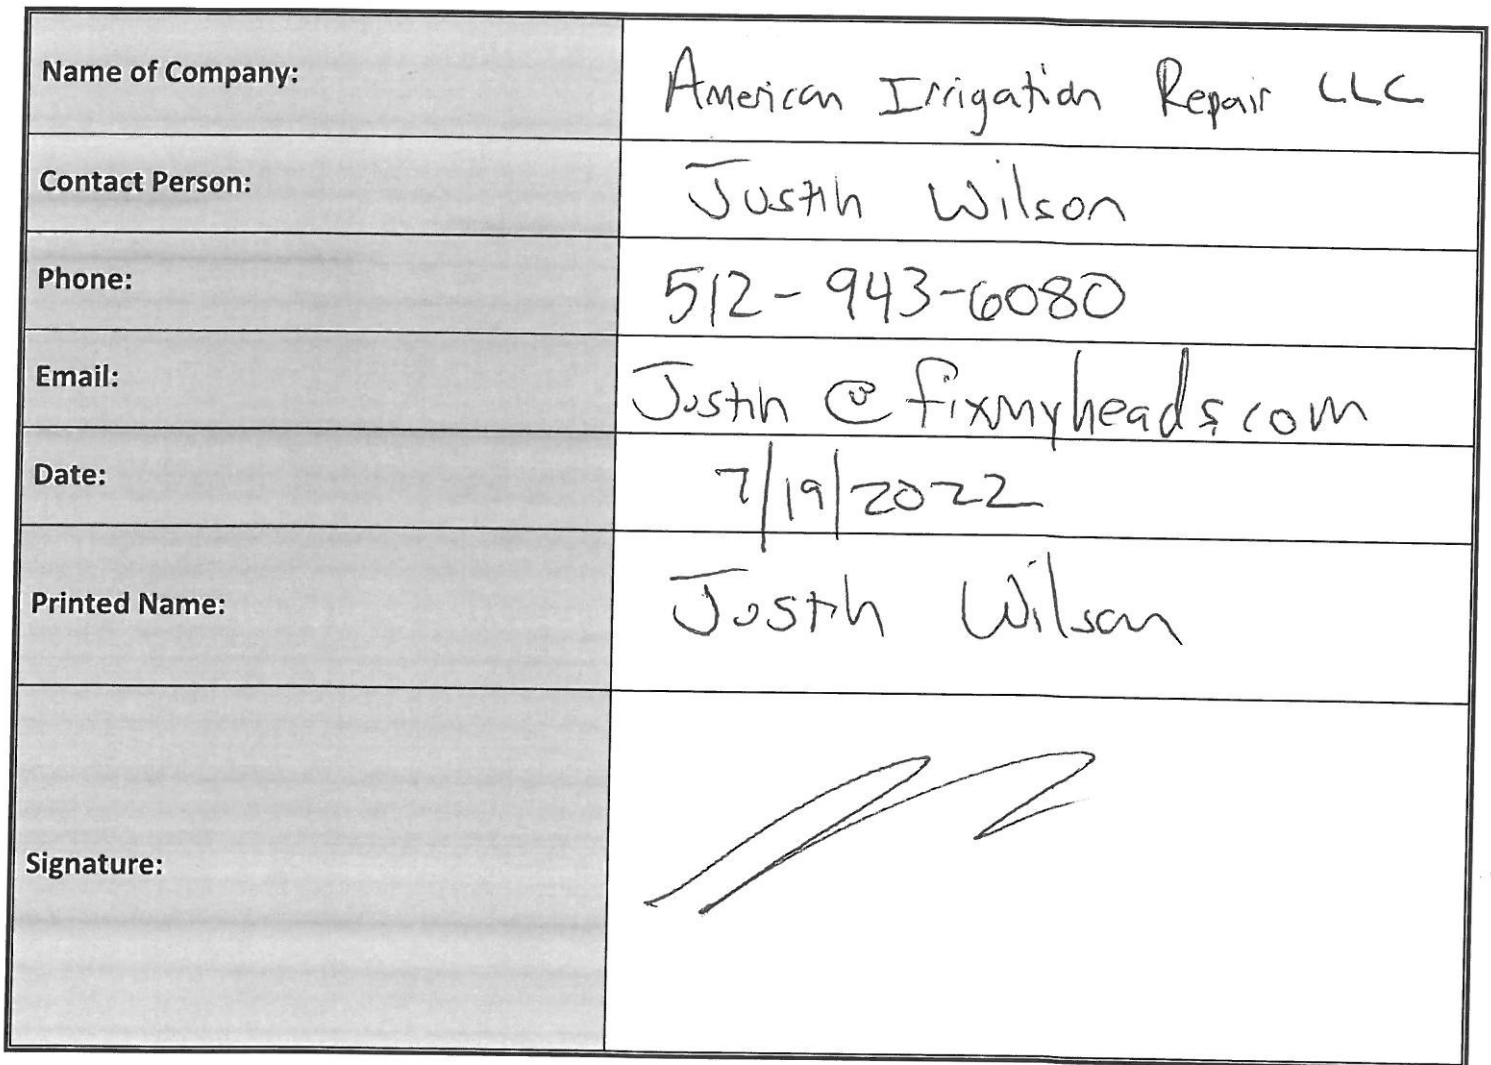 Name of Company: American Irrigation Repair LLC
Contact Person: Justin Wilson
Phone: 512-943-6080
Email: Justin@fixmyheads.com
Date: 7/19/2022
Printed Name: Justin Wilson
Signature: